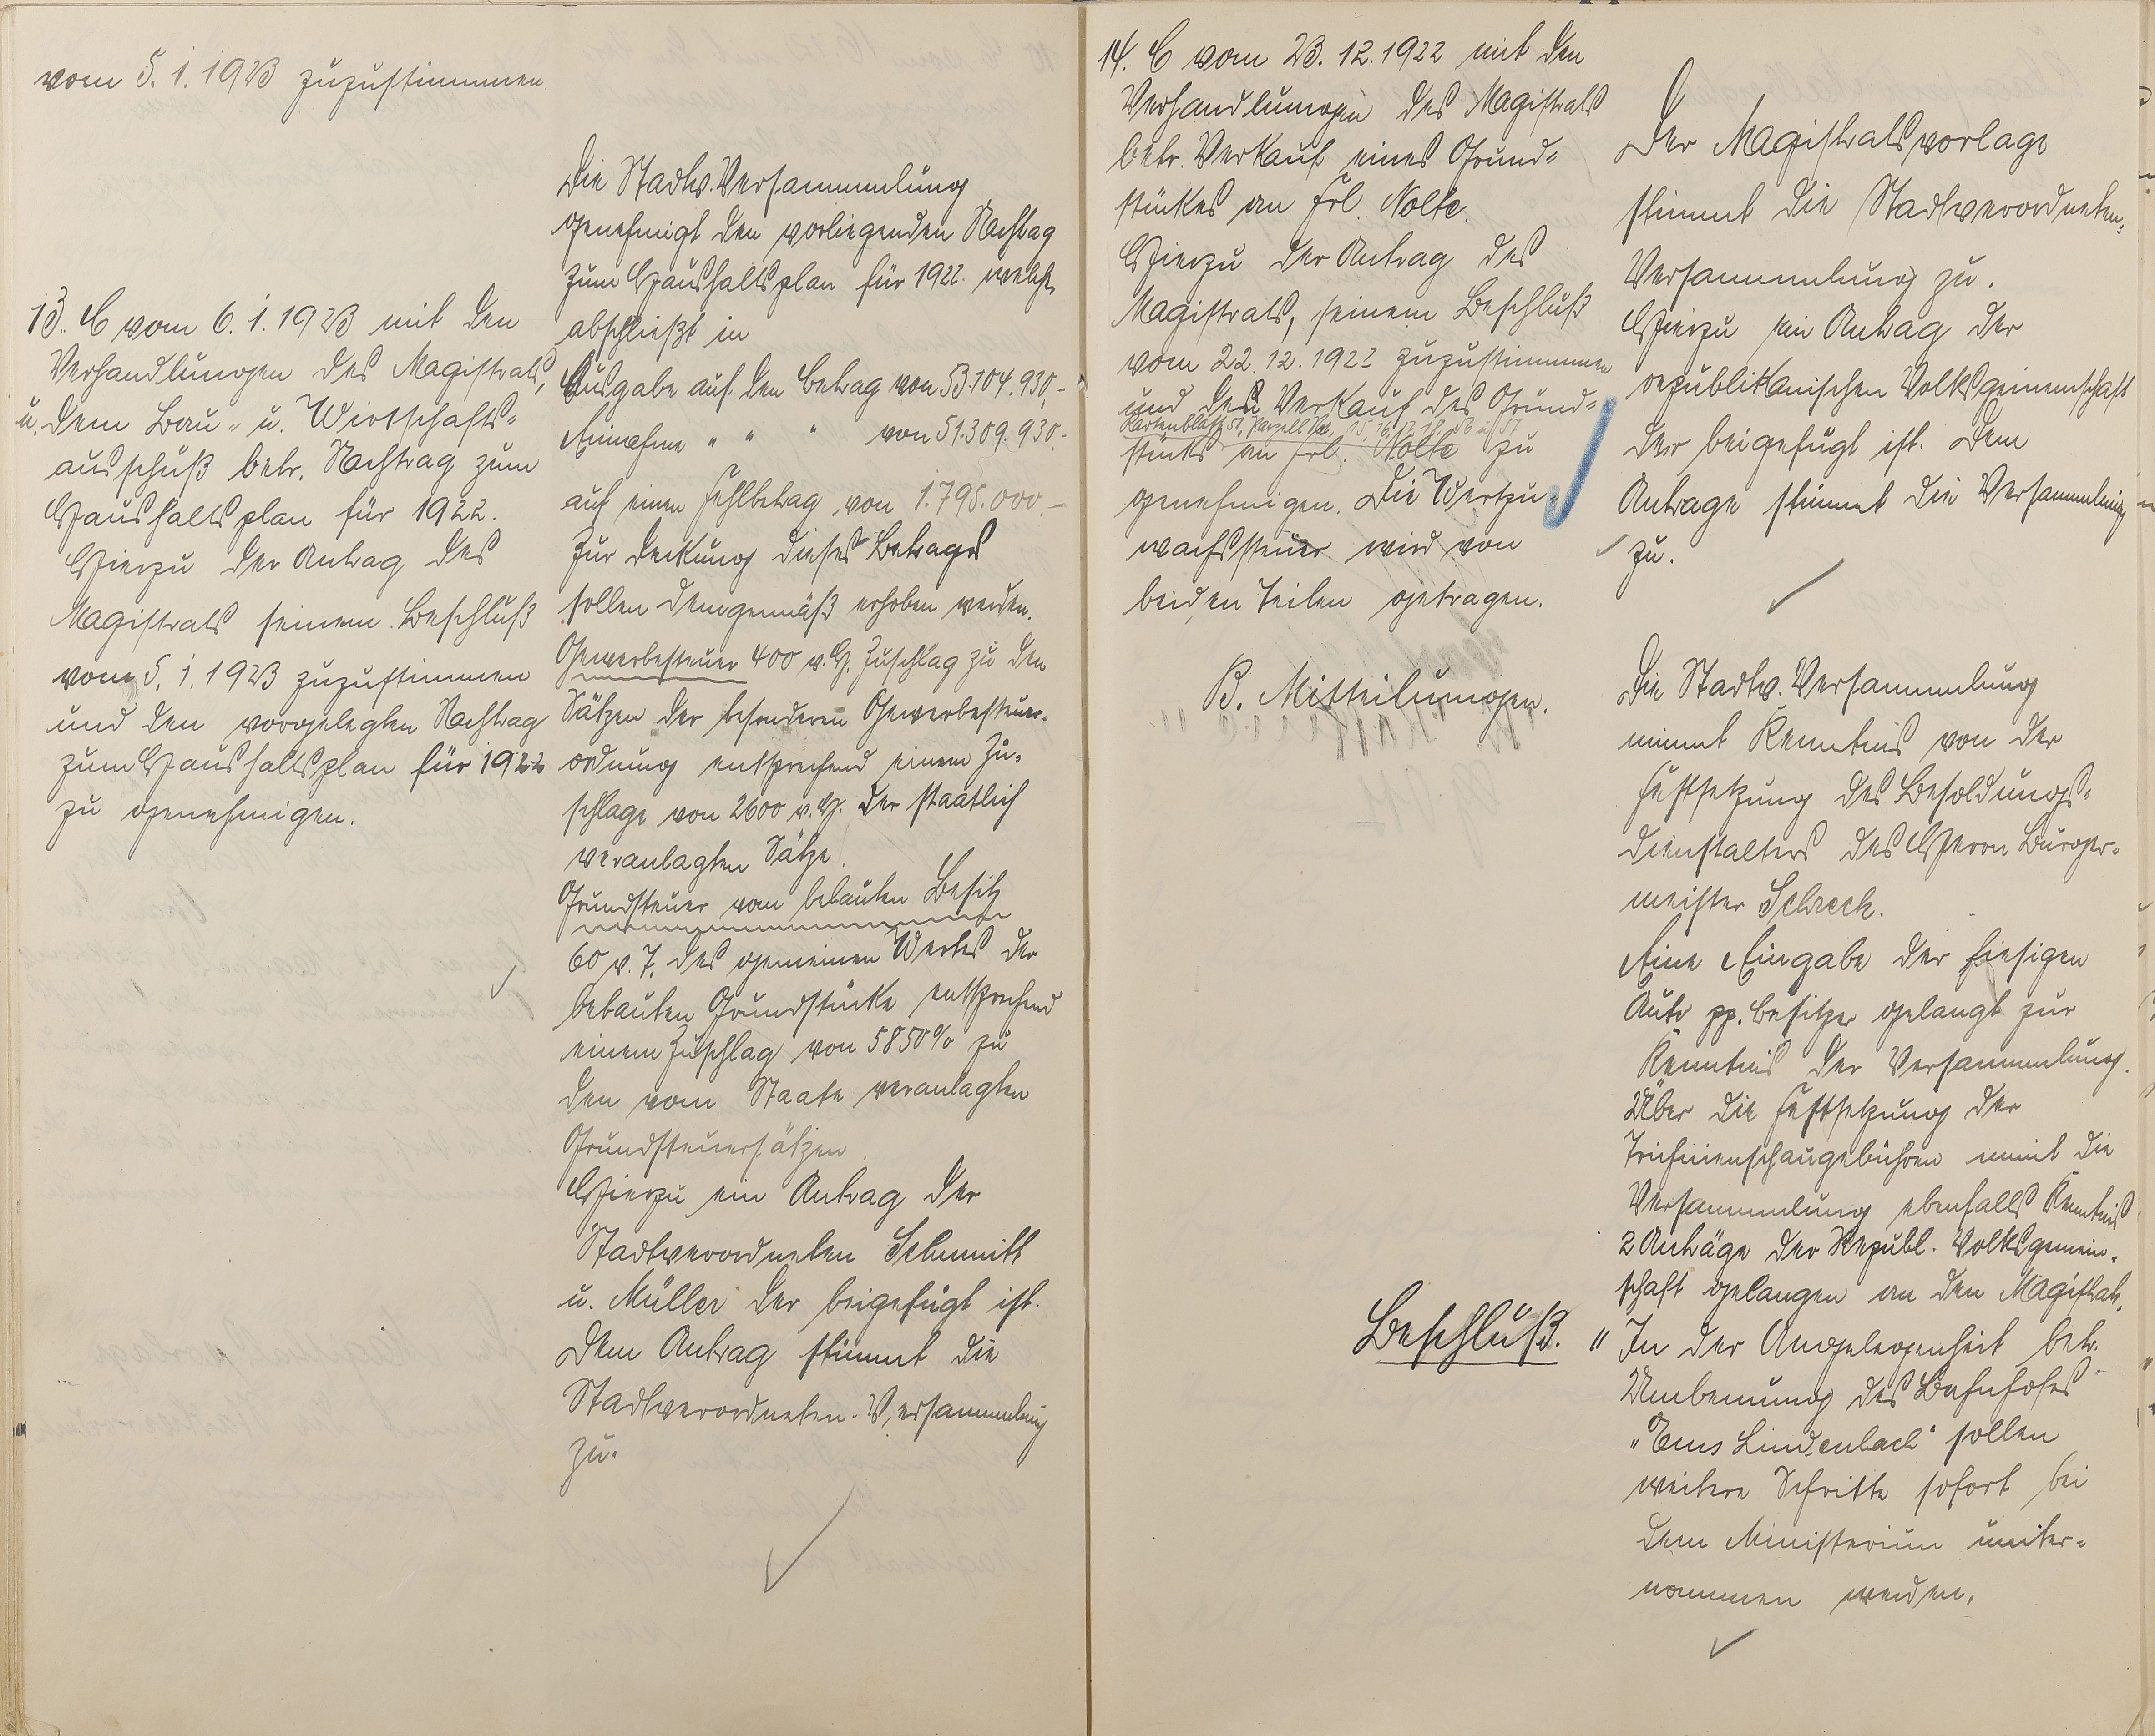 vom 5.1.1923 zuzustimmen.
13. E vom 6.1.1923 mit den
Verhandlungen des Magistrats,
u. dem Bau- u. Wirtschafts-
ausschuß betr. Nachtrag zum
Haushaltsplan für 1922.
Hierzu der Antrag des
Magistrats seinem Beschluß
vom 5.1.1923 zuzustimmen
und den vorgelegten Nachtrag
zum Haushaltsplan für 1922
zu genehmigen.
Die Stadtv. Versammlung
genehmigt den vorliegenden Nachtrag
zum Haushaltsplan für 1922. welcher
abschließt in
Ausgabe auf den Betrag von 53.104.930,-
Einnahme " " " von 51.309.930.-
auf einen Fehlbetrag von 1.795.000.-
Zur Deckung dieses Betrages
sollen demgemäß erhoben werden.
Gewerbesteuer 400 v.H. Zuschlag zu den
Sätzen der besonderen Gewerbesteuer-
ordnung entsprechend einem Zu-
schlage von 2600 v.H. der staatlich
veranlagten Sätze.
Grundsteuer vom bebauten Besitz
60 v.T. des gemeinen Wertes der
bebauten Grundstücke entsprechend
einem Zuschlag von 5850% zu
den vom Staate veranlagten
Grundsteuersätzen.
Hierzu ein Antrag der
Stadtverordneten Schmitt
u. Müller der beigefügt ist.
Dem Antrag stimmt die
Stadtverordneten-Versammlung
zu.
14. E vom 23.12.1922 mit den
Verhandlungen des Magistrats
betr. Verkauf eines Grund-
stückes an Frl. Nolte.
Hierzu der Antrag des
Magistrats, seinem Beschluß
vom 22.12.1922 zuzustimmen
und den Verkauf des Grund-
Kartenblatt 51, Parzelle 15, 16, 17, 18,
stücks an Frl. Nolte zu
genehmigen. Die Wertzu-
wachssteuer wird von
beiden Teilen getragen.
B. Mitteilungen.
Beschluß.
Der Magistratsvorlage
stimmt die Stadtverordneten-
Versammlung zu.
Hierzu ein Antrag der
republikanischen Volksgemeinschaft
der beigefügt ist. Dem
Antrage stimmt die Versammlung
zu.
Die Stadtv. Versammlung
nimmt Kenntnis von der
Festsetzung des Besoldungs-
dienstalters des Herrn Bürger-
meister Schreck.
Eine Eingabe der hiesigen
Auto pp. Besitzer gelangt zur
Kenntnis der Versammlung.
Über die Festsetzung der
Trichinenschaugebühren nimmt die
Versammlung ebenfalls Kenntnis
2 Anträge der Republ. Volksgemein-
schaft gelangen an den Magistrat.
" In der Angelegenheit betr.
Umbenennung des Bahnhofes
"Ems Lindenbach" sollen
weitere Schritte sofort bei
dem Ministerium unter-
nommen werden.